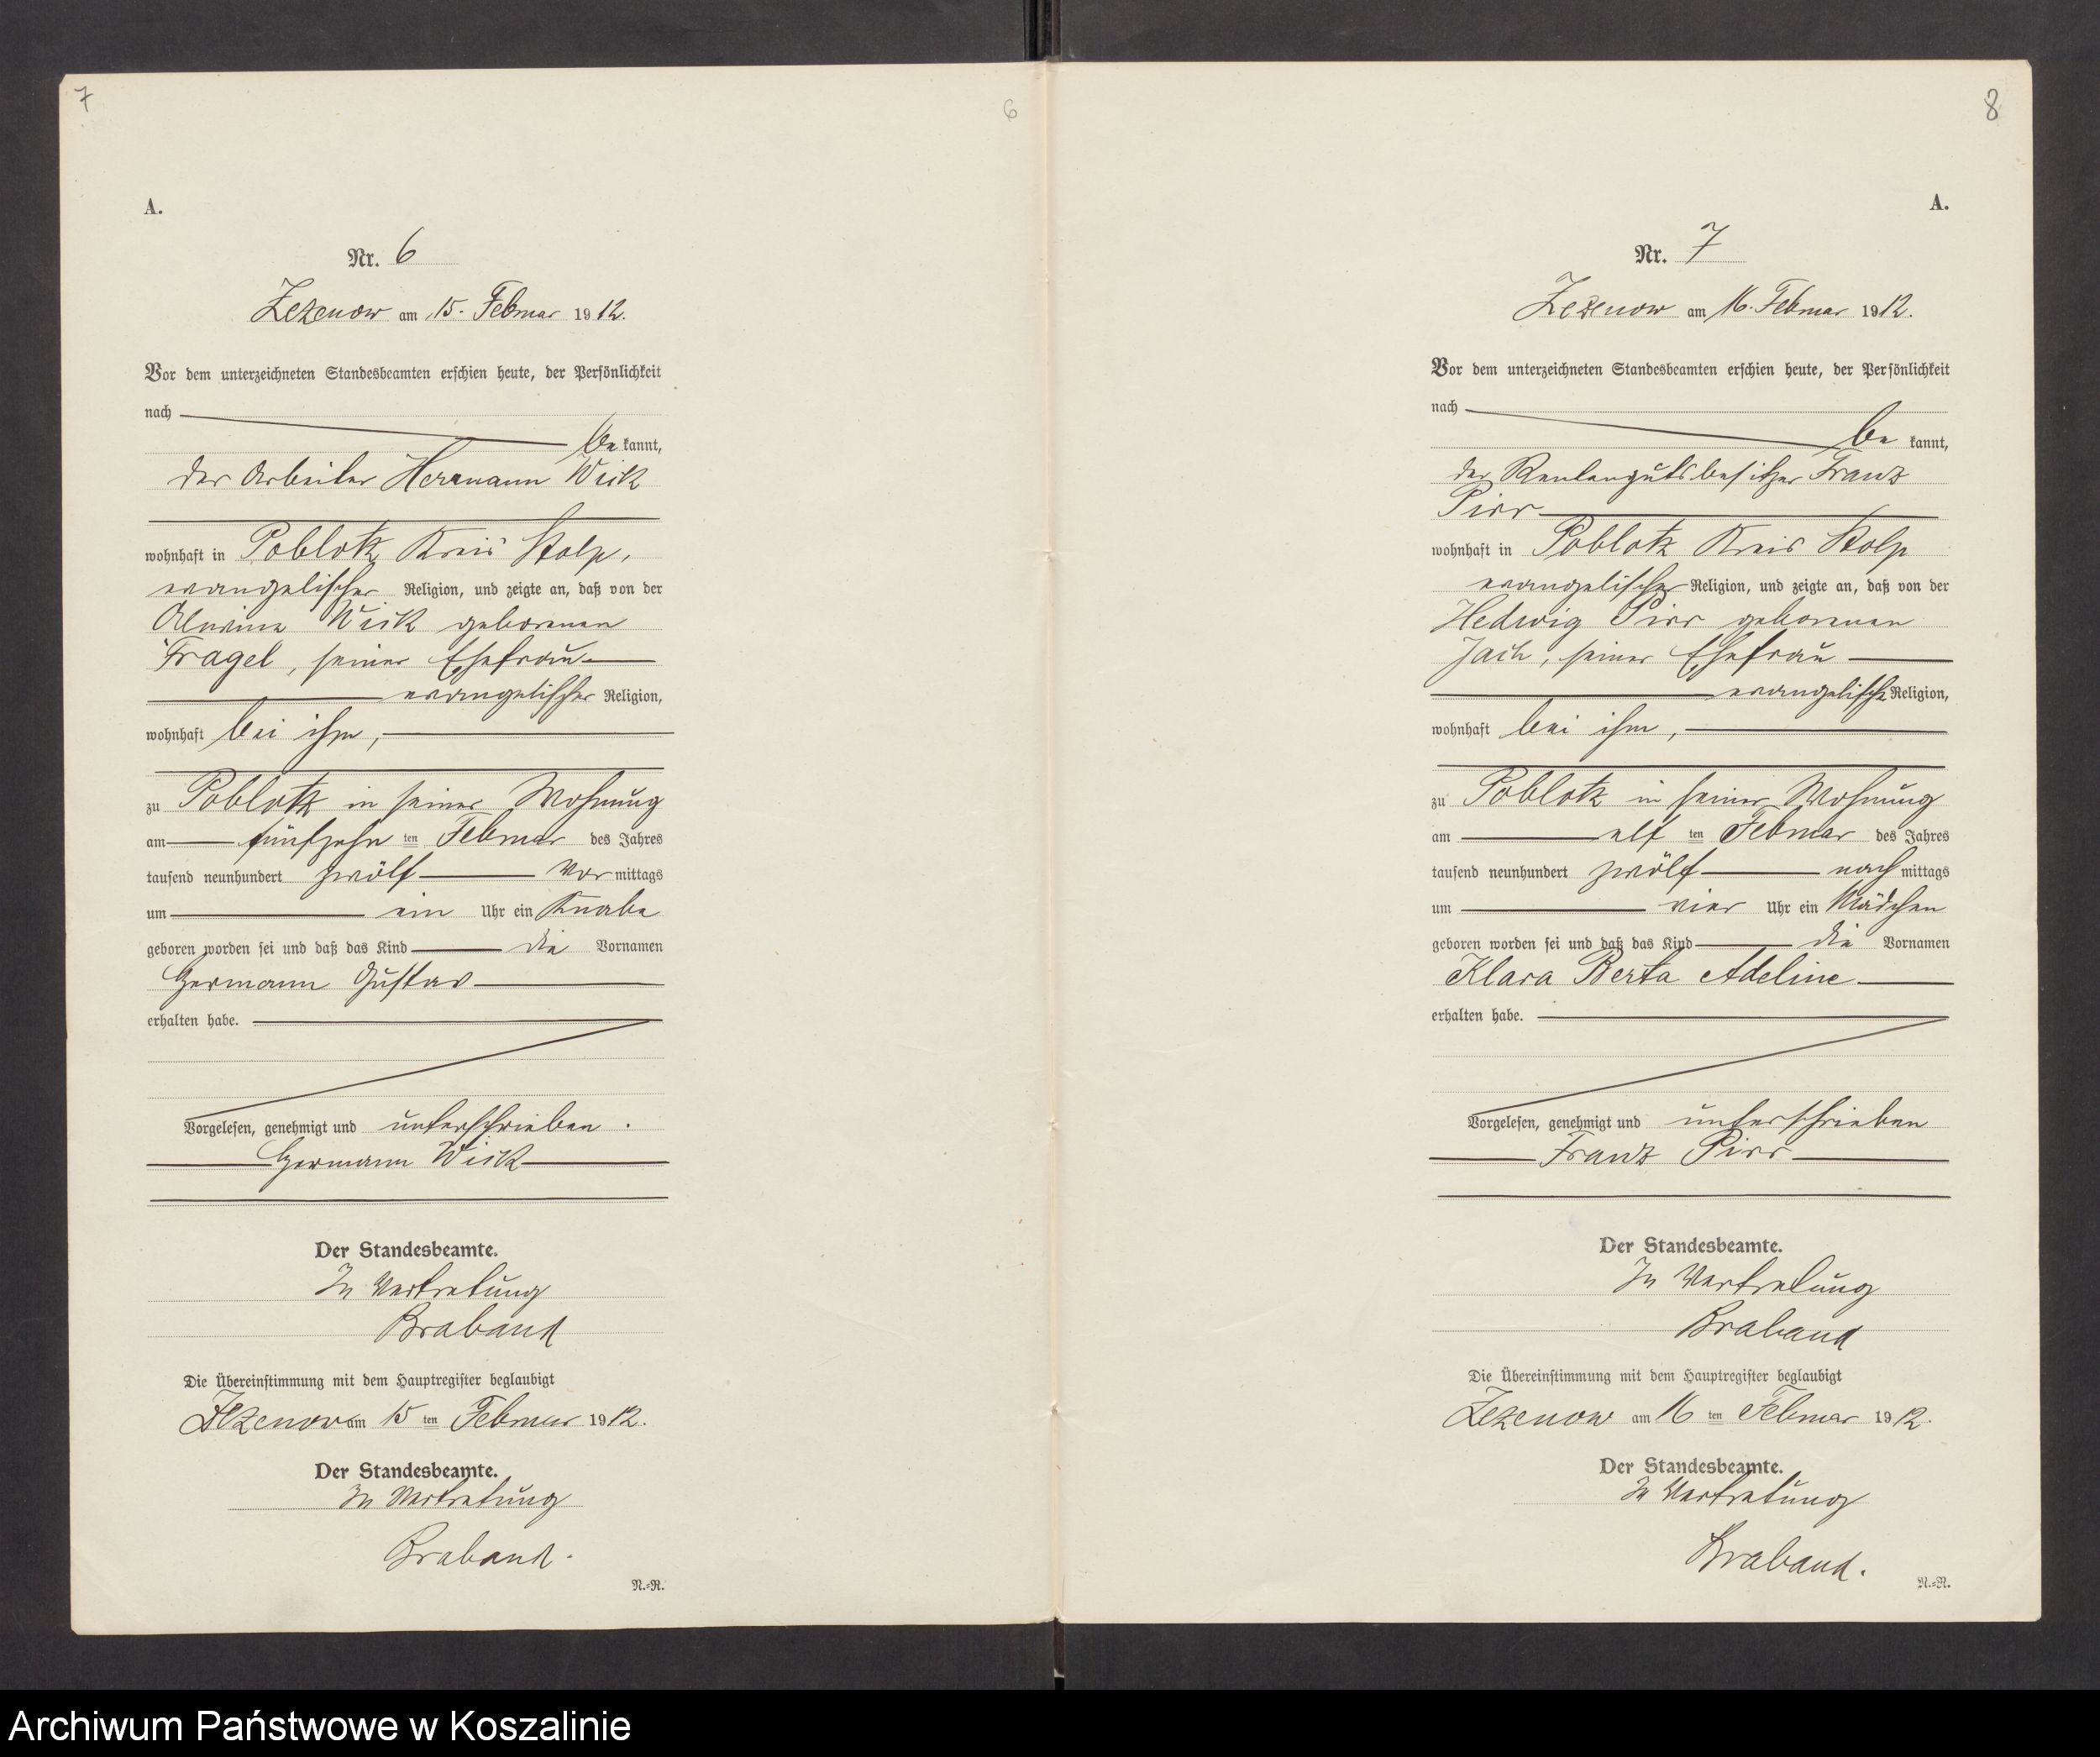 7
6
A.
Nr. 6
Zezenow am 15. Februar 1912.
Vor dem unterzeichneten Standesbeamten erschien heute, der Persönlichkeit
nach
be kannt,
der Arbeiter Hermann Wick
wohnhaft in Poblotz Kreis Stolp,
evangelischer Religion, und zeigte an, daß von der
Alwine Wick geborenen
Fragel, seiner Ehefrau
evangelischer Religion,
wohnhaft bei ihm,
zu Poblotz in seiner Wohnung
am fünfzehn ten Februar des Jahres
tausend neunhundert zwölf vor mittags
um ein Uhr ein Knabe
geboren worden sei und daß das Kind die Vornamen
Hermann Gustav
erhalten habe.
Vorgelesen, genehmigt und unterschrieben.
Hermann Wick
Der Standesbeamte.
In Vertretung
Braband
Die Übereinstimmung mit dem Hauptregister beglaubigt
Zezenow am 15 ten Februar 1912.
Der Standesbeamte.
In Vertretung
Braband.
N.-R.
8
A.
Nr. 7
Zezenow am 16. Februar 1912.
Vor dem unterzeichneten Standesbeamten erschien heute, der Persönlichkeit
nach
be kannt,
der Rentengutsbesitzer Franz
Pirr
wohnhaft in Poblotz Kreis Stolp
evangelischer Religion, und zeigte an, daß von der
Hedwig Pirr geborenen
Jach, seiner Ehefrau
evangelischer Religion,
wohnhaft bei ihm,
zu Poblotz in seiner Wohnung
am elf ten Februar des Jahres
tausend neunhundert zwölf nach mittags
um vier Uhr ein Mädchen
geboren worden sei und daß das Kind die Vornamen
Klara Berta Adeline
erhalten habe.
Vorgelesen, genehmigt und unterschrieben
Franz Pirr
Der Standesbeamte.
In Vertretung
Braband
Die Übereinstimmung mit dem Hauptregister beglaubigt
Zezenow am 16 ten Februar 1912.
Der Standesbeamte.
In Vertretung
Braband.
N.-R.
Archiwum Państwowe w Koszalinie